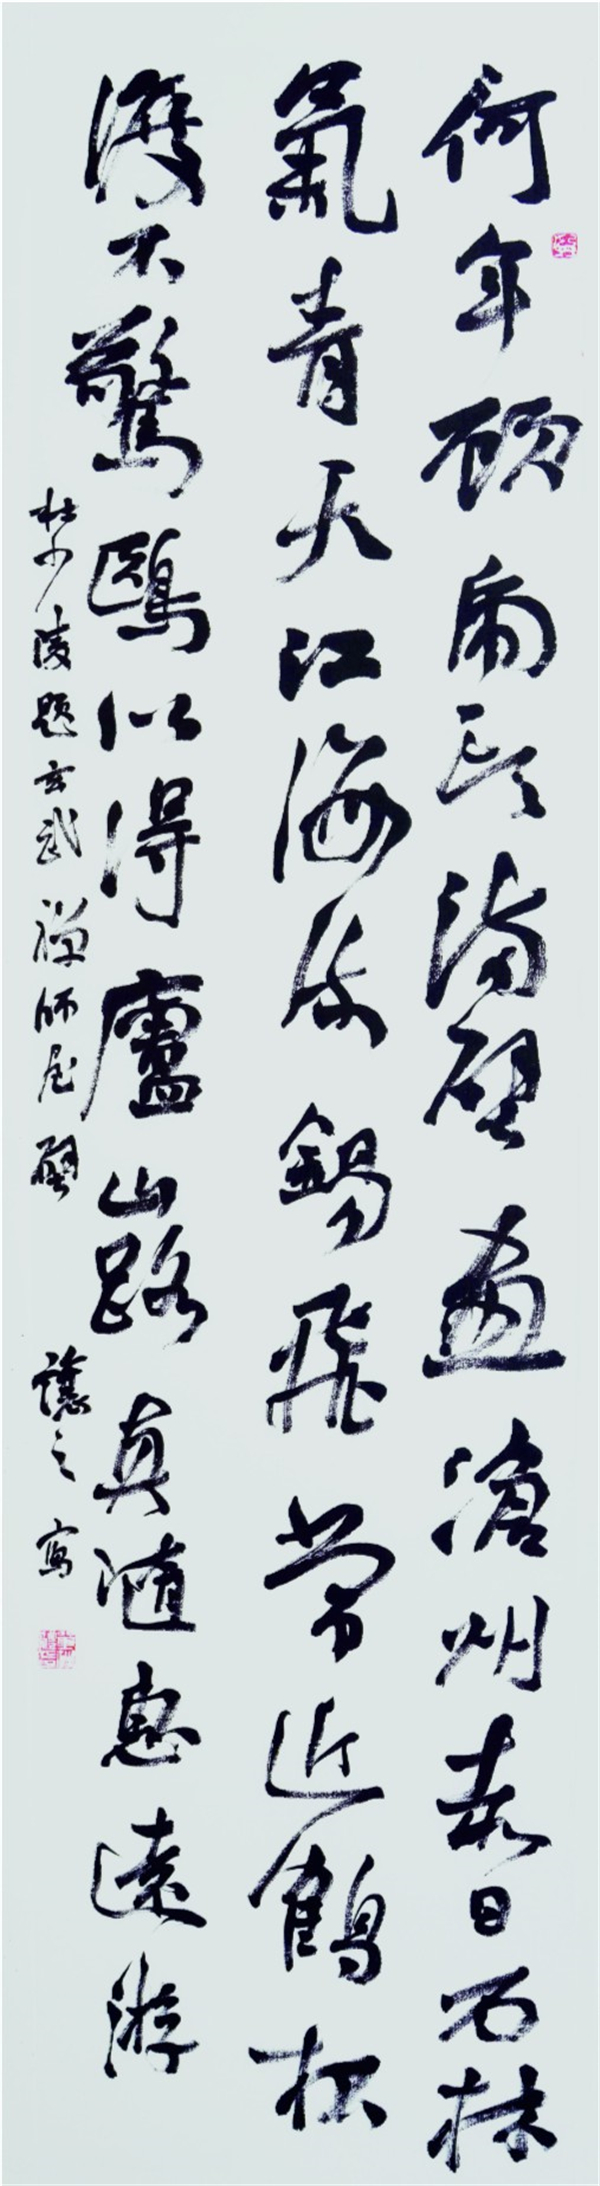 何年顧虎頭滿壁畫滄州赤日石林
氣青天江海流錫飛常近鶴杯
渡不驚鷗似得廬山路真隨惠遠游
杜少陵題玄武禪師屋壁 讓之寫